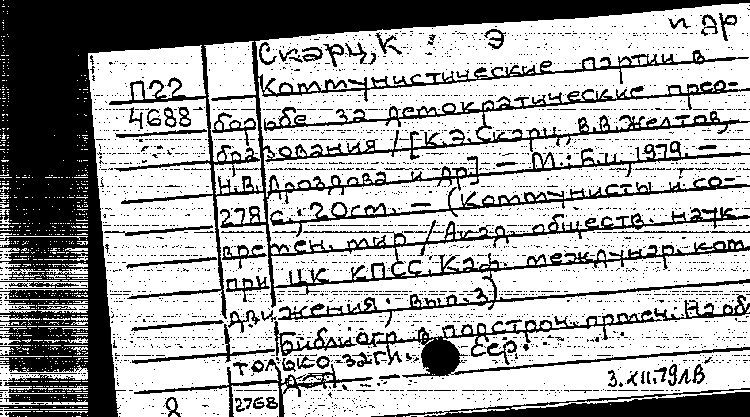 Скарц, К. Э. и др
П22 Коммунистические партии в
4688 борьбе за демократические прео-
бразования / [К.Э.Скарц, В.В.Желтов,
Н.В.Дроздова и др.] – М.: Б.и., 1979. –
278 с.; 20 см. – (Коммунисты и со-
времен. мир / Акад. обществ. наук
при ЦК КПСС. Каф. междунар. ком
движения; Вып.3)
Библиогр. в подстроч. примеч. На об
только загл. сер.
ДСП.
3.XII.79ЛВ
8 2768